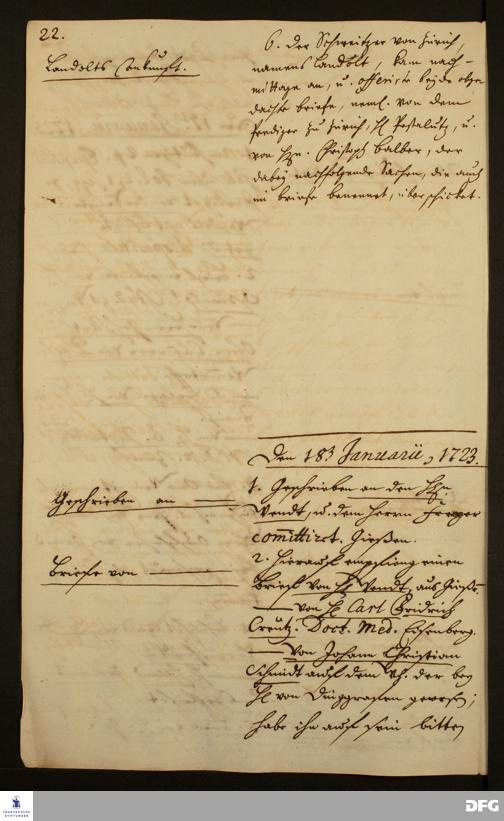 22.
Landolts Ankunfft.
6. Der Schweitzer von Zürich,
namens Landolt, kam nach-
mittags an, u. offerirte beyde obge-
dachte briefe, neml. von dem
Prediger zu Zürich, H. Pestalutz, u.
von Hrn. Christoph Balber, der
dabey nachfolgende Sachen, die auch
im briefe benennet, überschicket.
Den 18. Januarii, 1723.
Geschrieben an
1. Geschrieben an den Hrn.
Vendt, u. dem Herrn Freyer
comittirt. Gießen.
Briefe von
2. Hierauf empfieng einen
Brieff von H. Vendt, aus Gieße-
von H. Carl Fridrich
Creutz. Doct. Med. Eisenberg.
von Johann Christian
Schmidt auß dem der bey
H. von gewesen;
habe ihn auf sein bitten
FRANCKESCHE STIFTUNGEN
DFG